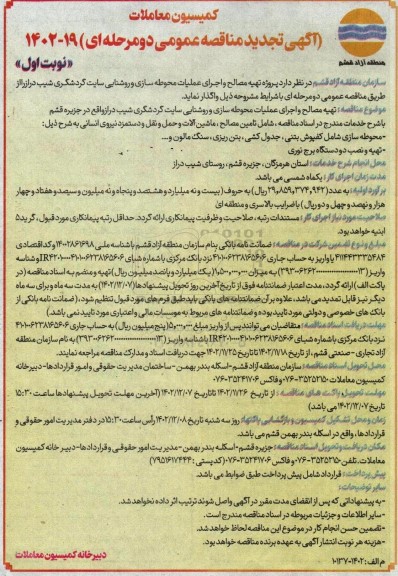 کمیسیون معاملات
(آگهی تجدید مناقصه عمومی دو مرحله ای) ۱۹-۱۴۰۲
«نوبت اول»
منطقه آزاد قشم
سازمان منطقه آزاد قشم در نظر دارد پروژه تهیه مصالح و اجرای عملیات محوطه سازی و روشنایی سایت گردشگری شیب دراز را از
طریق مناقصه عمومی دو مرحله ای با شرایط مشروحه ذیل واگذار نماید.
موضوع مناقصه: تهیه مصالح و اجرای عملیات محوطه سازی و روشنایی سایت گردشگری شیب دراز واقع در جزیره قشم
با شرح خدمات مندرج در اسناد مناقصه، شامل تامین مصالح، ماشین آلات و حمل و نقل و دستمزد نیروی انسانی به شرح ذیل:
-محوطه سازی شامل کفپوش بتنی، جدول کشی، بتن ریزی، سنگ مالون و...
-تهیه و نصب دو دستگاه برج نوری
محل انجام شرح خدمات: استان هرمزگان، جزیره قشم، روستای شیب دراز
مدت زمان اجرای کار: یکماه شمسی می باشد.
برآورد اولیه: به عدد (۲۹,۸۵۹,۳۷۴,۹۴۲ ریال) به حروف (بیست و نه میلیارد و هشتصد و پنجاه و نه میلیون و سیصد و هفتاد و چهار
هزار و نهصد و چهل و دو ریال) با ضرایب بالاسری و منطقه ای
صلاحیت مورد نیاز اجرای کار: مستندات رتبه، صلاحیت و ظرفیت پیمانکاری ارائه گردد. حداقل رتبه پیمانکاری مورد قبول، گرید ۵
ابنیه خواهد بود.
مبلغ و نوع تضمین شرکت در مناقصه: ضمانت نامه بانکی بنام سازمان منطقه آزاد قشم با شناسه ملی ۱۴۰۰۲۸۶۱۶۹۸ و کد اقتصادی
۴۱۱۴۳۳۳۵۴۸۴ یا واریز به حساب جاری ۴۱۰۱۰۰۶۲۳۸۱۶۵۶۰۶ نزد بانک مرکزی با شماره شبای
واریز
به میزان
(یک میلیارد و پانصد میلیون ریال) تهیه و منضم به اسناد مناقصه (در
پاکت الف) ارائه گردد، مدت اعتبار ضمانتنامه فوق از تاریخ آخرین روز تحویل پیشنهادها (۱۴۰۲/۱۲/۰۷) به مدت سه ماه و برای سه ماه
دیگر نیز قابل تمدید می باشد، علاوه بر آن ضمانتنامه های بانکی باید طبق فرم های مورد قبول تنظیم شود، (ضمانت نامه بانکی از
بانک های خصوصی و دولتی مورد تایید بوده و ضمانتنامه های مربوط به موسسات مالی و اعتباری مورد تایید نمی باشد)
مهلت دریافت اسناد مناقصه: متقاضیان می توانند پس از واریز مبلغ ۵,۰۰۰,۰۰۰ (پنج میلیون ریال) به حساب جاری ۴۱۰۱۰۰۶۲۳۸۱۶۵۶۰۶
نزد بانک مرکزی با شماره شبای
با شناسه واریز
به نام سازمان منطقه
آزاد تجاری - صنعتی قشم، از تاریخ ۱۴۰۲/۱۱/۱۸ تا تاریخ ۱۴۰۲/۱۱/۲۵ جهت دریافت اسناد و مدارک مناقصه مراجعه نمایند.
محل تحویل اسناد مناقصه: سازمان منطقه آزاد قشم-اسکله بندر بهمن - ساختمان مدیریت حقوقی و امور قراردادها- دبیرخانه
کمیسیون معاملات ۰۷۶-۳۵۲۵۲۱۵۰ و فاکس ۰۷۶-۳۵۲۴۱۷۰۶
مهلت تحویل پاکت های مناقصه: از تاریخ ۱۴۰۲/۱۱/۲۶ تا تاریخ ۱۴۰۲/۱۲/۰۷ (آخرین مهلت تحویل پیشنهادها ساعت ۱۵:۳۰
تاریخ ۱۴۰۲/۱۲/۰۷ می باشد)
زمان و محل تشکیل کمیسیون و بازگشایی پاکتها: روز سه شنبه تاریخ ۱۴۰۲/۱۲/۰۸ رأس ساعت ۱۵:۳۰ در دفتر مدیریت امور حقوقی و
قراردادها، واقع در اسکله بندر بهمن قشم می باشد.
مکان دریافت و تحویل اسناد مناقصه: جزیره قشم-اسکله بندر بهمن-مدیریت امور حقوقی و قراردادها-دبیر خانه کمیسیون
معاملات، تلفن ۰۷۶-۳۵۲۵۲۱۵۰ و فاکس ۰۷۶-۳۵۲۴۱۷۰۶ (کدپستی: ۷۹۵۱۶۱۷۴۴۴)
پیش پرداخت: قرارداد شامل پیش پرداخت طبق ضوابط می باشد.
سایر توضیحات:
-به پیشنهاداتی که پس از انقضای مدت مقرر در آگهی واصل شوند ترتیب اثر داده نخواهد شد.
-سایر اطلاعات و جزئیات مربوطه در اسناد مناقصه مندرج است.
-تضمین حسن انجام کار در موضوع این مناقصه لحاظ خواهد شد.
-هزینه هر نوبت انتشار آگهی به عهده برنده مناقصه خواهد بود.
دبیرخانه کمیسیون معاملات
م الف: ۱۰۱۳۷-۱۴۰۲